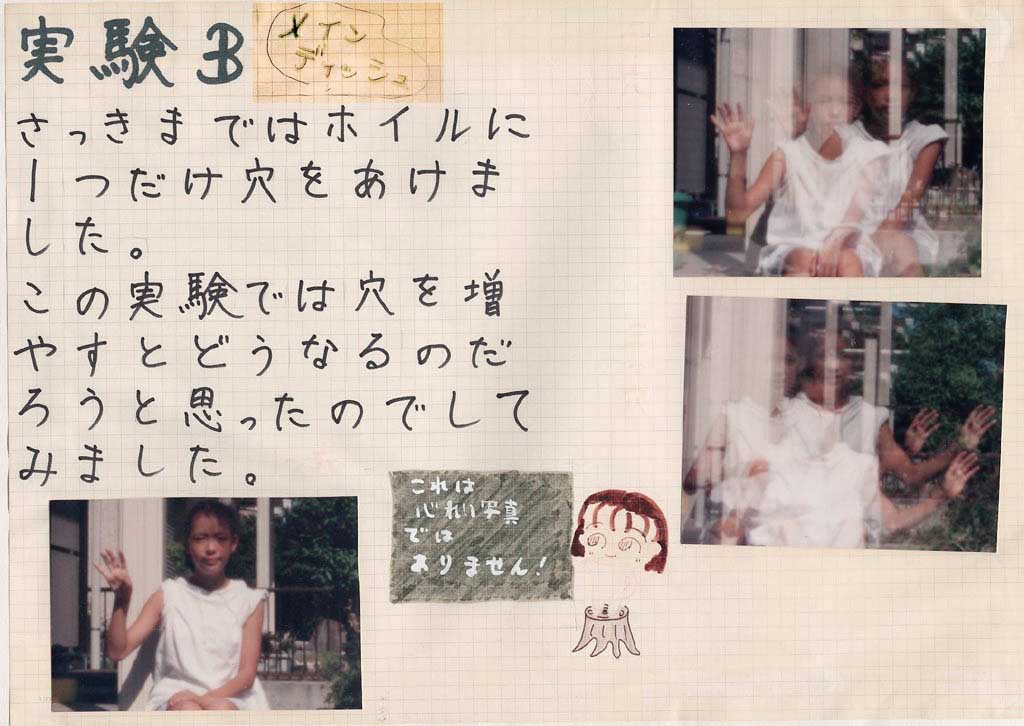 実験B
メイン
ディッシュ
さっきまではホイルに
1つだけ穴をあけま
した。
この実験では穴を増
やすとどうなるのだ
ろうと思ったのでして
みました。
これは
心れい写真
では
ありません!